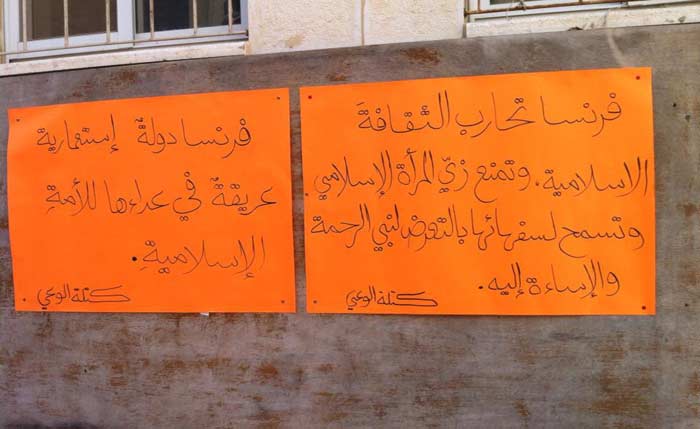 فرنسا تحارب الثقافةَ
الاسلامية، وتمنع زيّ المرأة الإسلامي
وتسمح لسفهائها بالتعرض لنبي الرحمة
والإساءة إليه.
كتلة الوعي
فرنسا دولةٌ إستعمارية
عريقةٌ في عداءها للأمةِ
الإسلاميةِ.
كتلة الوعي